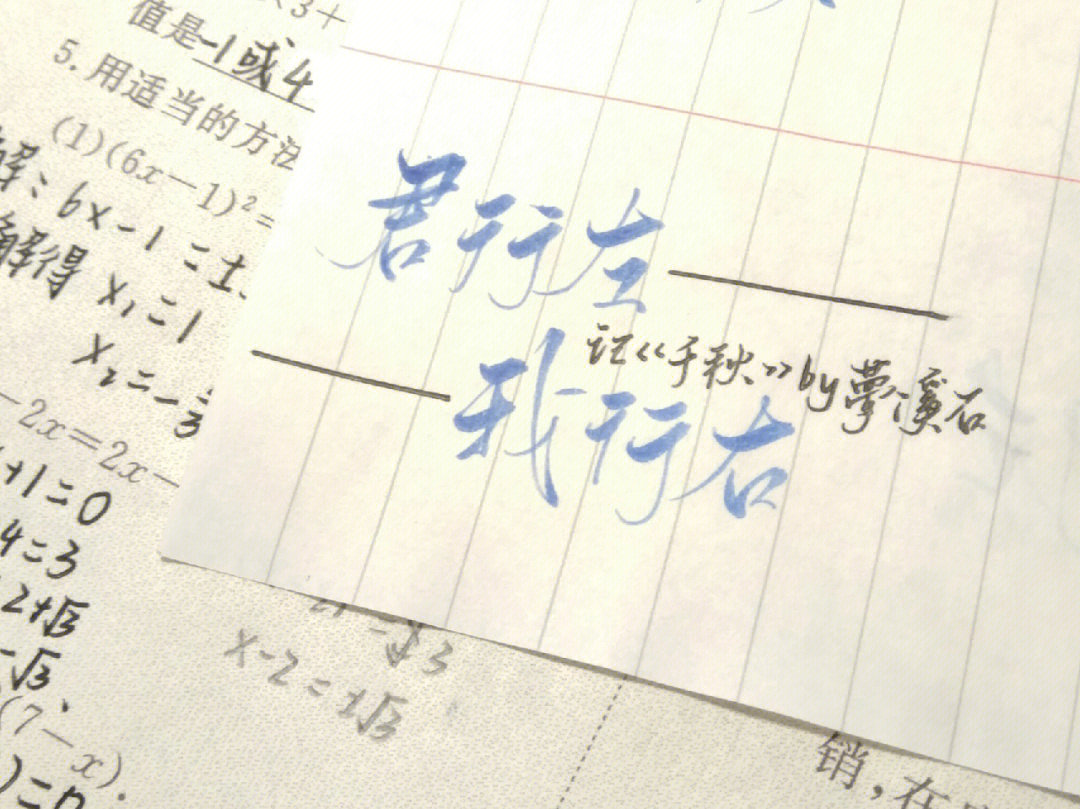 值是-1或4
5.用适当的方法
(1)(6x-1)²=
解:6x-1=±
解得 x₁=1
x₂=-
-2x=2x-
+1=0
4=3
2+√3
-√3
x-2=±√3
(7-x).
)=0
君行左
我行右
记《千秋》by夢溪石
销,在